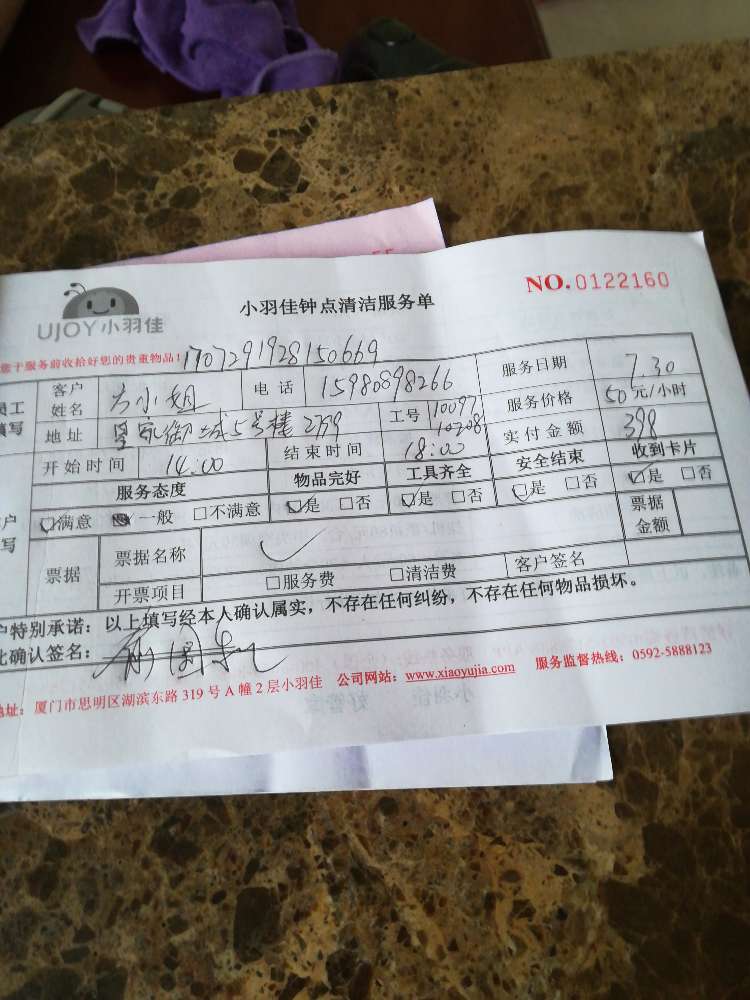 NO.0122160
小羽佳钟点清洁服务单
UJOY小羽佳
您于服务前收拾好您的贵重物品!1707291928150669
员工填写 客户姓名 方小姐 电话 15980898266 服务日期 7.30
地址 皇家御城5号楼2709 工号 10097 10208 服务价格 50元/小时
开始时间 14:00 结束时间 18:00 实付金额 398
服务态度 物品完好 工具齐全 安全结束 收到卡片
☑满意 一般 □不满意 ☑是 □否 ☑是 □否 ☑是 □否 ☑是 □否
票据 票据名称 ✓ 票据金额
开票项目 □服务费 □清洁费 客户签名
户特别承诺:以上填写经本人确认属实,不存在任何纠纷,不存在任何物品损坏。
此确认签名:
地址:厦门市思明区湖滨东路319号A幢2层小羽佳 公司网站:www.xiaoyujia.com 服务监督热线:0592-5888123